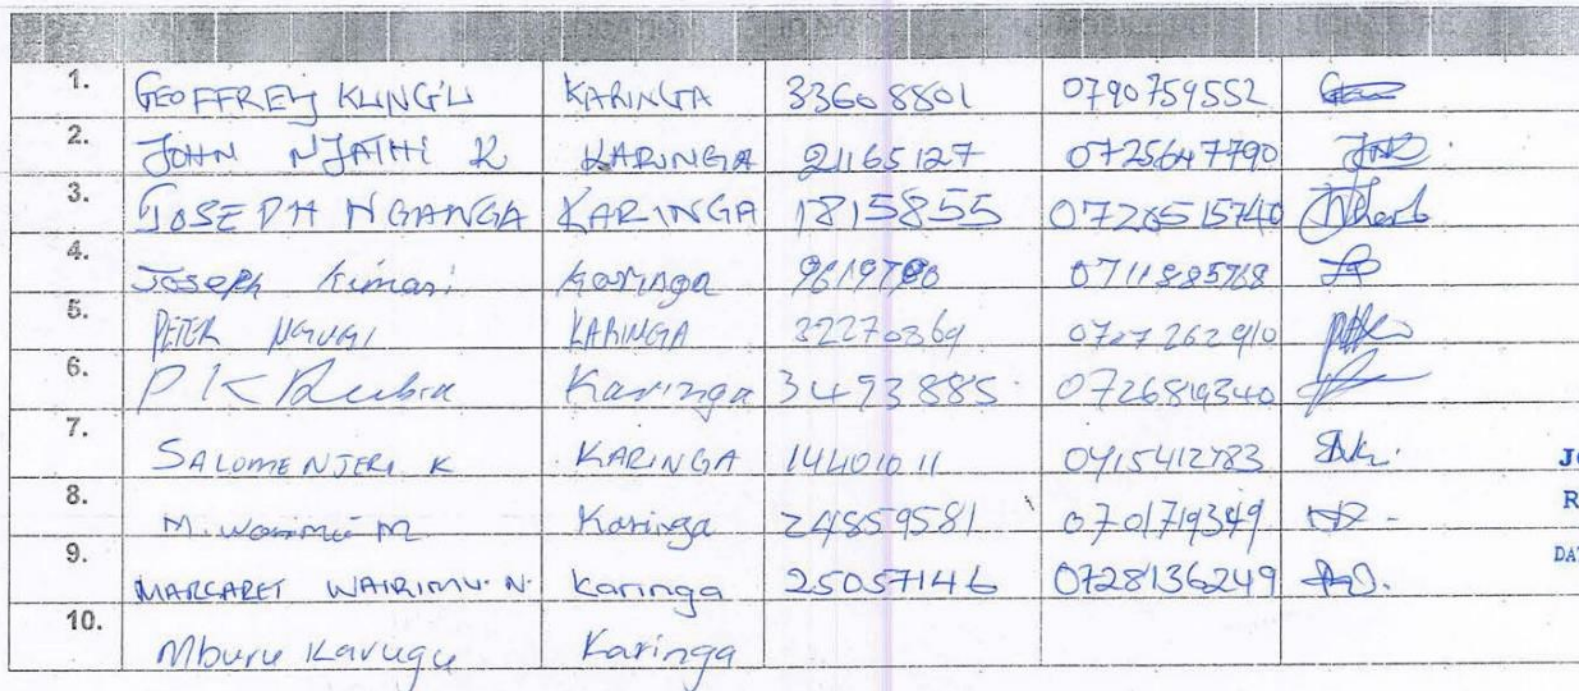 1. GEOFFREY KUNG'U KARINGA 33608801 0790759552
2. JOHN NJATHI K KARINGA 21165127 0725647790
3. JOSEPH NGANGA KARINGA 1815855 0726515740
4. Joseph Kimani Karinga 0711885768
5. PETER NGUGI KARINGA 32270369 0727262910
6. P K Rubia Karinga 3493885 0726819340
7. SALOME NJERI K KARINGA 14401011 0715412783
8. M. Wairimu M Karinga 24859581 0701719349
9. MARGARET WAIRIMU. N. Karinga 25057146 0728136249
10. Mburu Karugu Karinga